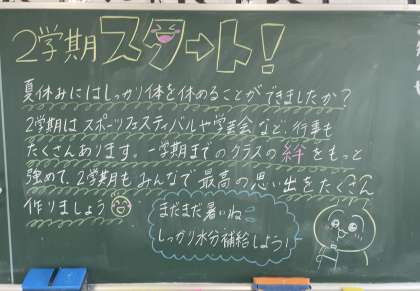 2学期スタート!
夏休みにはしっかり体を休めることができましたか?
2学期はスポーツフェスティバルや学芸会など、行事も
たくさんあります。一学期までのクラスの絆をもっと
強めて、2学期もみんなで最高の思い出をたくさん
作りましょう
まだまだ暑いね
しっかり水分補給しよう!